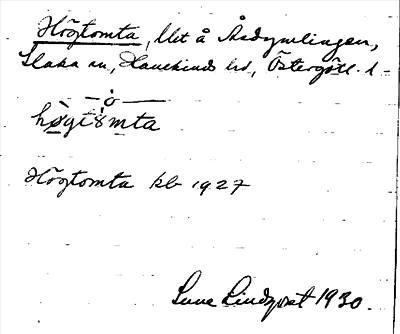 Högtomta, lht å Åsdymlingen,
Slaka sn, Hanekinds hd, Östergötl. l-
—ȯ—
hø̀gtomta
Högtomta kb 1927
Sune Lindqvist 1930.